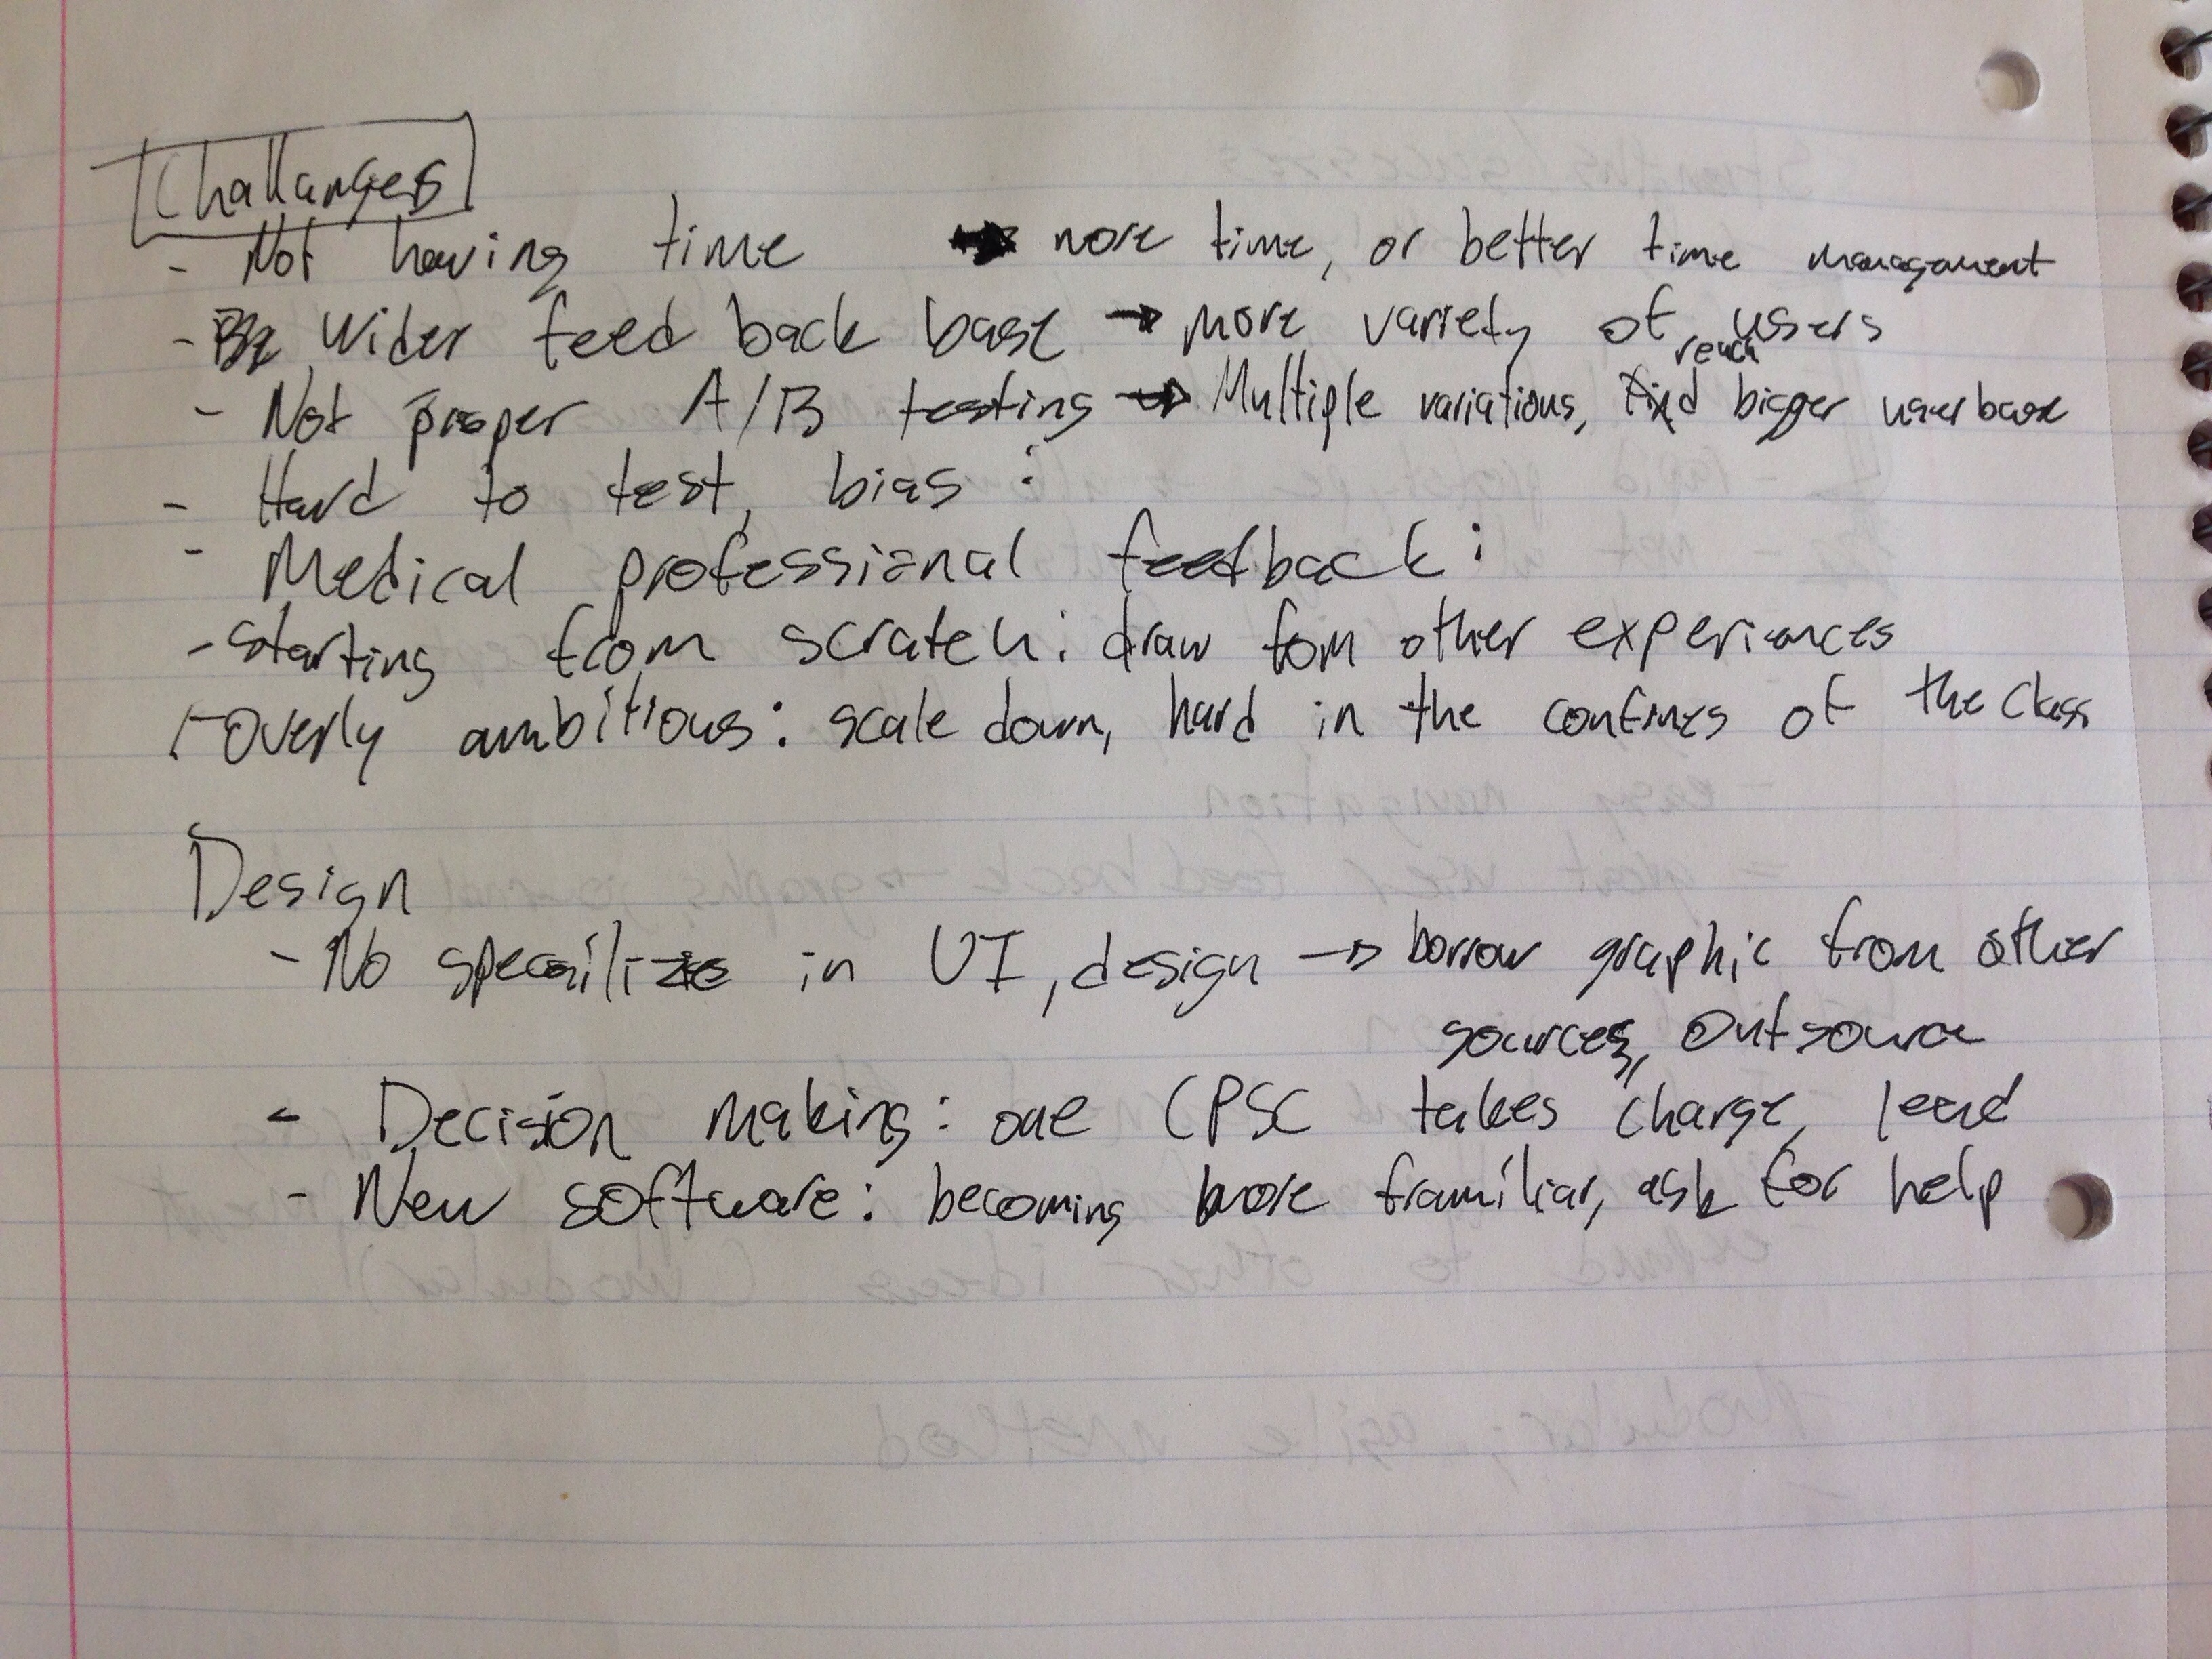 Challanges
- Not having time → more time, or better time management
- wider feed back base → more variety of ussers
- Not proper A/B testing → Multiple variations, find bigger userbase
reach
- Hard to test bias :
- Medical professional feedback :
- starting from scratch : draw from other experiances
- Overly ambitious : scale down, hard in the confines of the class
Design
- No specailize in UI, design → borrow graphic from other
sources, outsource
- Decision making : one CPSC takes charge, lead
- New software : becoming more framiliar, ask for help